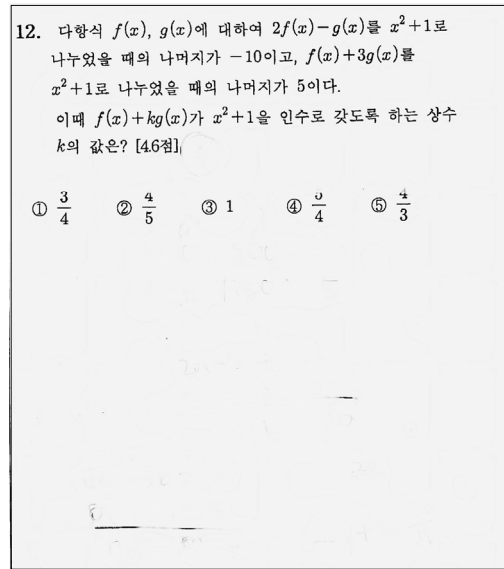 12. 다항식 f(x), g(x)에 대하여 2f(x)-g(x)를 x²+1로
나누었을 때의 나머지가 -10이고, f(x)+3g(x)를
x²+1로 나누었을 때의 나머지가 5이다.
이때 f(x)+kg(x)가 x²+1을 인수로 갖도록 하는 상수
k의 값은? [4.6점]
① 3/4 ② 4/5 ③ 1 ④ 5/4 ⑤ 4/3